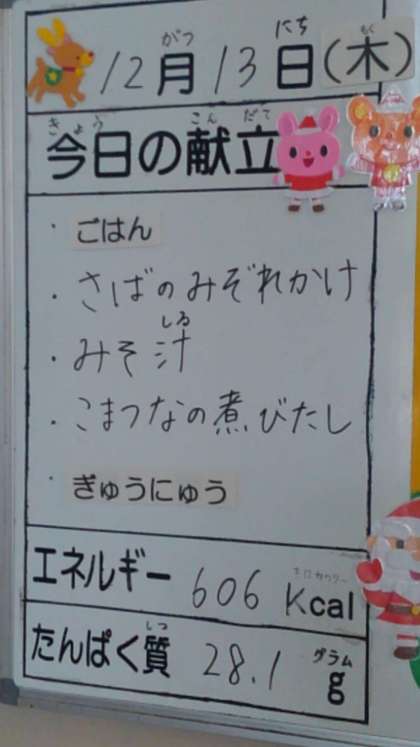 12月13日(木)
今日の献立
・ごはん
・さばのみぞれかけ
・みそ汁
・こまつなの煮びたし
・ぎゅうにゅう
エネルギー 606 Kcal
たんぱく質 28.1 g